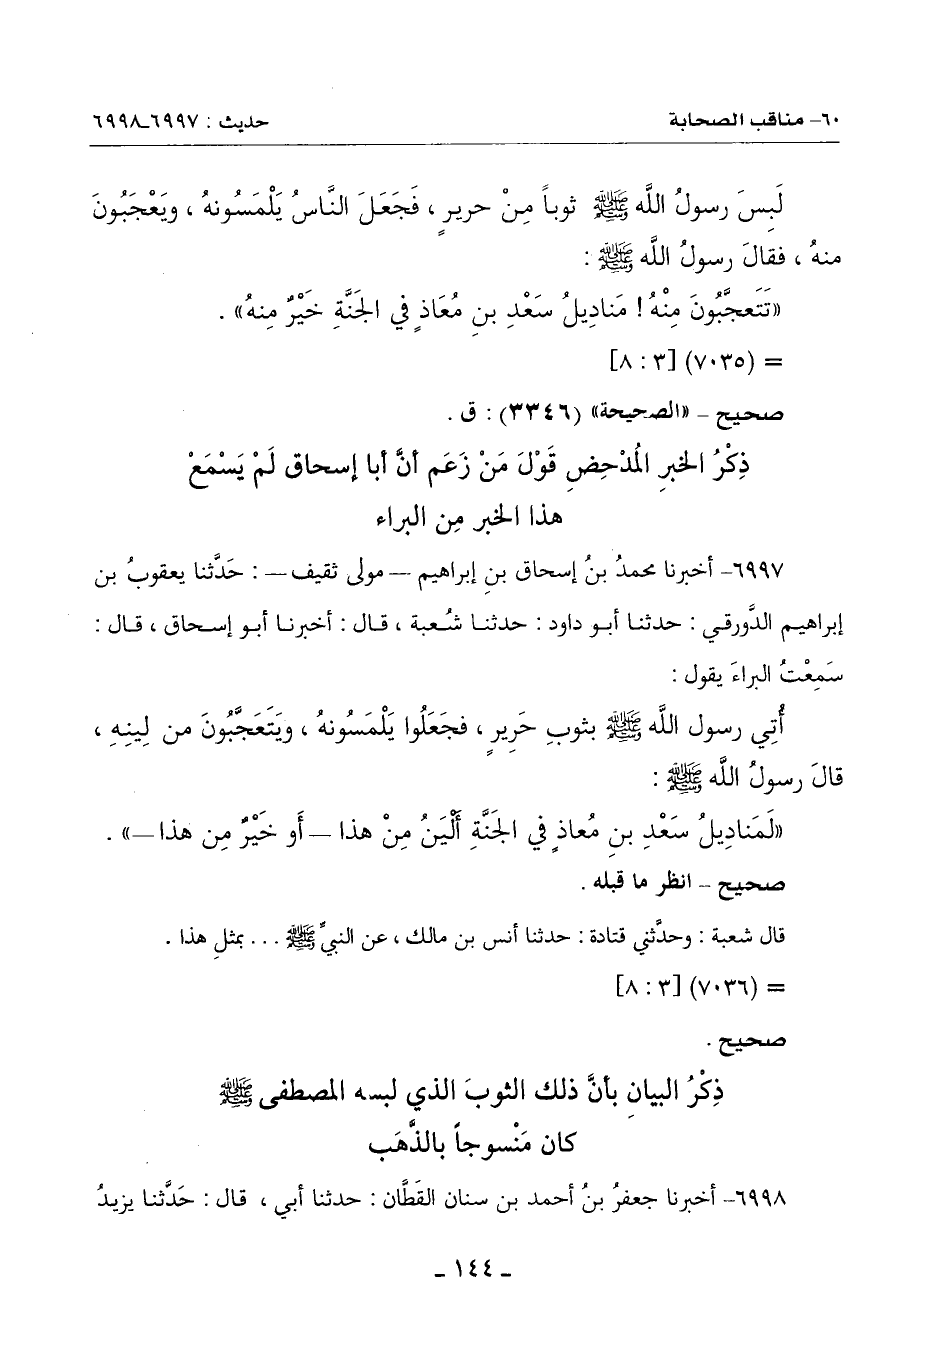 ٦٠- مناقب الصحابة
حديث : ٦٩٩٧ـ٦٩٩٨
لَبِسَ رسولُ اللَّه ﷺ ثوباً مِنْ حريرٍ ، فَجَعَلَ النَّاسُ يَلْمَسُونهُ ، ويَعْجَبُونَ
منهُ ، فقالَ رسولُ اللَّه ﷺ :
«تَتَعجَّبُونَ مِنْهُ ! مَناديلُ سَعْدِ بنِ مُعَاذٍ في الجَنَّةِ خَيْرٌ مِنهُ» .
= (٧٠٣٥) [٣ : ٨]
صحيح ـ «الصحيحة» (٣٣٤٦) : ق .
ذِكْرُ الخبرِ المُدْحِضِ قَوْلَ مَنْ زَعَم أنَّ أبا إسحاق لَمْ يَسْمَعْ
هذا الخبر مِن البراء
٦٩٩٧- أخبرنا محمدُ بنُ إسحاق بنِ إبراهيم — مولى ثقيف — : حَدَّثنا يعقوبُ بن
إبراهيم الدَّورقي : حدثنا أبو داود : حدثنا شُعبة ، قال : أخبرنا أبو إسحاق ، قال :
سَمِعْتُ البراءَ يقول :
أُتِي رسول اللَّه ﷺ بثوبِ حَرِيرٍ ، فجَعَلُوا يَلْمَسُونهُ ، ويَتَعَجَّبُونَ من لِينِهِ ،
قالَ رسولُ اللَّه ﷺ :
«لَمَناديلُ سَعْدِ بنِ مُعاذٍ في الجَنَّةِ أَلْيَنُ مِنْ هذا —أَو خَيْرٌ مِن هذا—» .
صحيح ـ انظر ما قبله .
قال شعبة : وحدَّثني قتادة : حدثنا أنس بن مالك ، عن النبيِّ ﷺ ... بمثلِ هذا .
= (٧٠٣٦) [٣ : ٨]
صحيح .
ذِكْرُ البيانِ بأنَّ ذلك الثوبَ الذي لبسه المصطفى ﷺ
كان مَنْسوجاً بالذَّهَب
٦٩٩٨- أخبرنا جعفرُ بنُ أحمد بن سنان القَطَّان : حدثنا أبي ، قال : حَدَّثنا يزيدُ
ـ ١٤٤ ـ